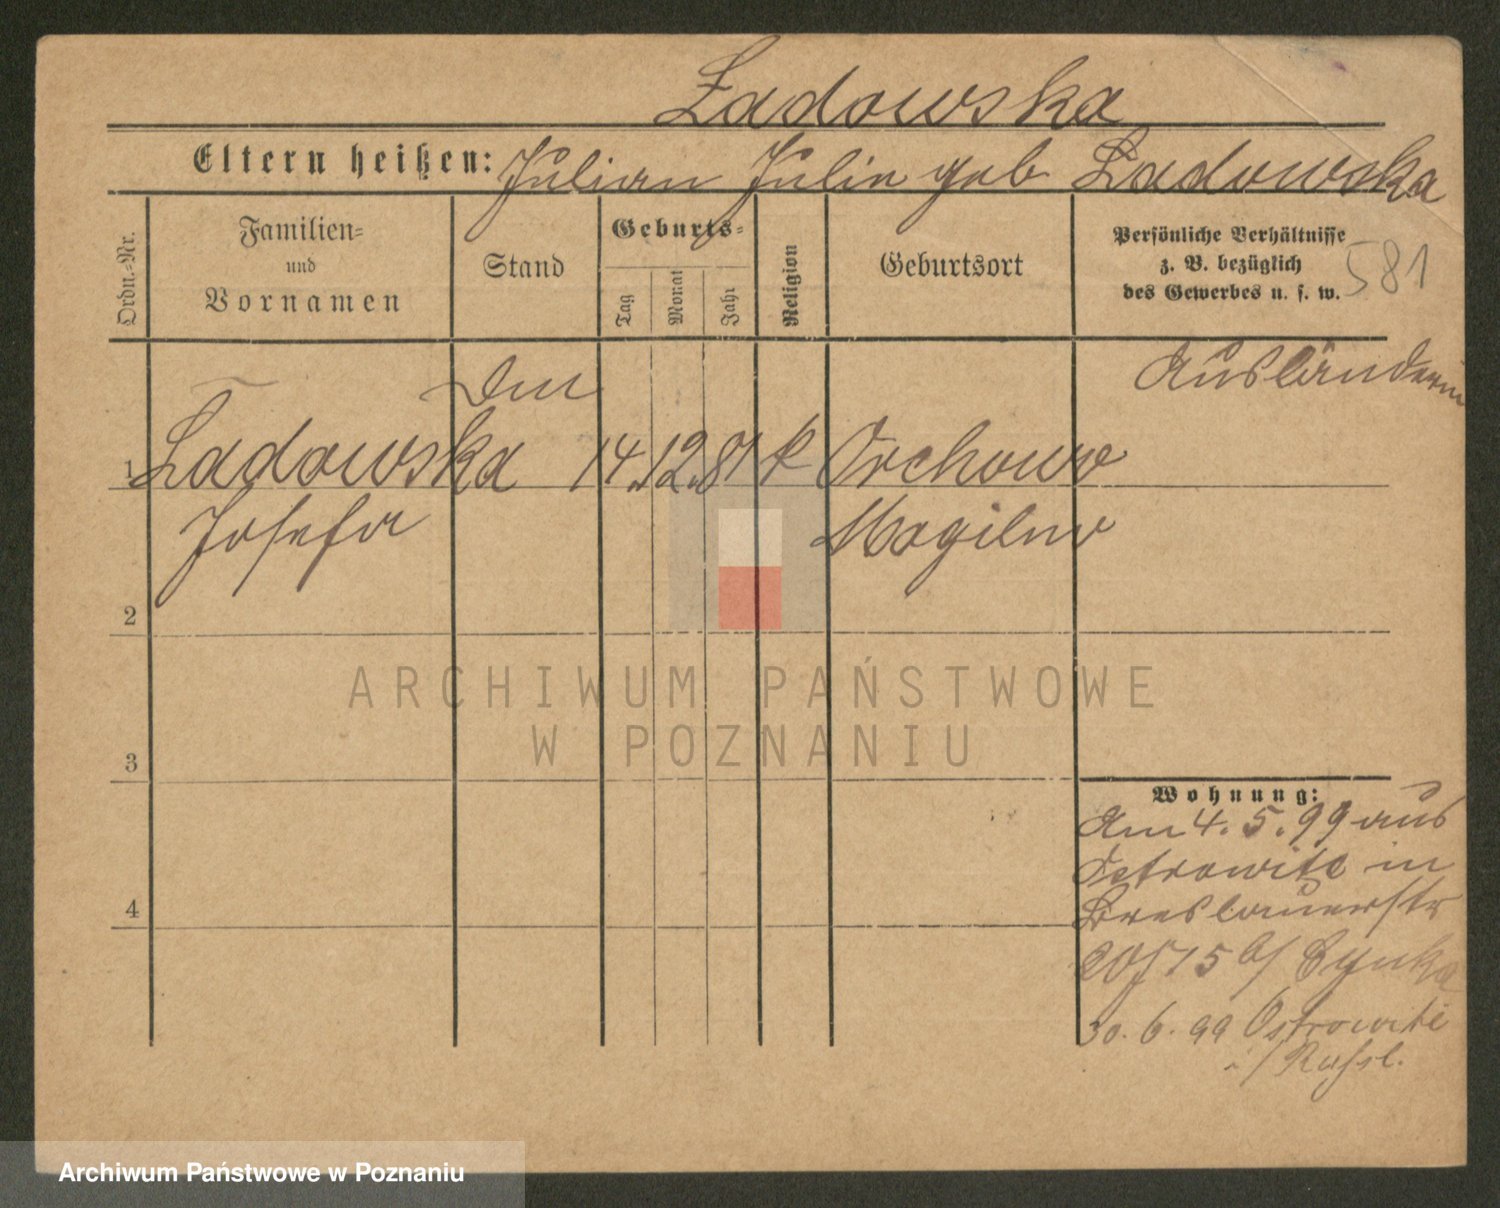 Ladowska
Eltern heißen: Julian Julie geb Ladowska
Ordn.-Nr.
Familien-
und
Vornamen
Stand
Geburts-
Tag
Monat
Jahr
Religion
Geburtsort
Persönliche Verhältnisse
z. B. bezüglich
des Gewerbes u. s. w.
581
Ausländerin
1 Ladowska 14.12.81 k Orchowo
Josefa Mogilno
2
3
4
Wohnung:
Am 4.5.99 aus
Ostrowite in
Breslauerstr
20
30.6.99 Ostrowite
i/Russl.
ARCHIWUM PAŃSTWOWE
W POZNANIU
Archiwum Państwowe w Poznaniu